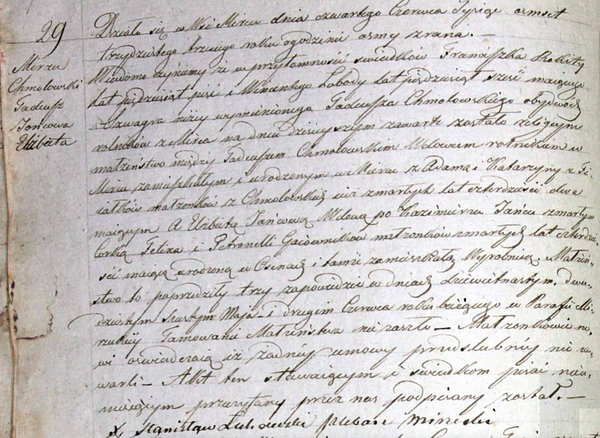 29
Mirzec
Chmolowski
Tadeusz
Jańcowa
Elżbieta
Działo się w Wsi Mircu dnia czwartego Czerwca Tysiąc osmset
trzydziestego trzeciego roku o godzinie osmy zrana. —
Wiadomo czynimy iż w przytomności świadków Franciszka Rokity
lat pięćdziesiąt pięć i Wincentego Łobody lat pięćdziesiąt sześć maiących
Szwagra niżey wymienionego Tadeusza Chmolowskiego obydwóch
rolników z Mirca na dniu dzisieyszym zawarte zostało religijne
małżeństwo między Tadeuszem Chmolowskim Wdowcem rolnikiem w
Mircu zamieszkałym i urodzonym w Mircu z Adama i Katarzyny z
małżonków Chmolowskich iuż zmarłych lat czterdzieści dwa
maiącym A Elżbietą Jańcową Wdową po Kazimierzu Jańcu zmarłym
córką Felixa i Petronelli Gaiowników małżonków zmarłych lat czterdzie-
ści maiącą urodzoną w Osinach i tamże zamieszkałą Wyrobnicą. Małżeń-
stwo to poprzedziły trzy zapowiedzie w dniach dziewiętnastym, dwu-
dziestym szustym Maja i drugim Czerwca roku bieżącego w Parafii Mi-
rzeckiy Tamowanie Małżeństwa nie zaszło — Małżonkowie no-
wi oświadczaią iż żadney umowy przedślubnéy nie za-
warli — Akt ten stawaiącym i świadkom pisać nieu-
mieiącym przeczytany przez nas podpisany został. —
X. Stanisław pleban mirecki